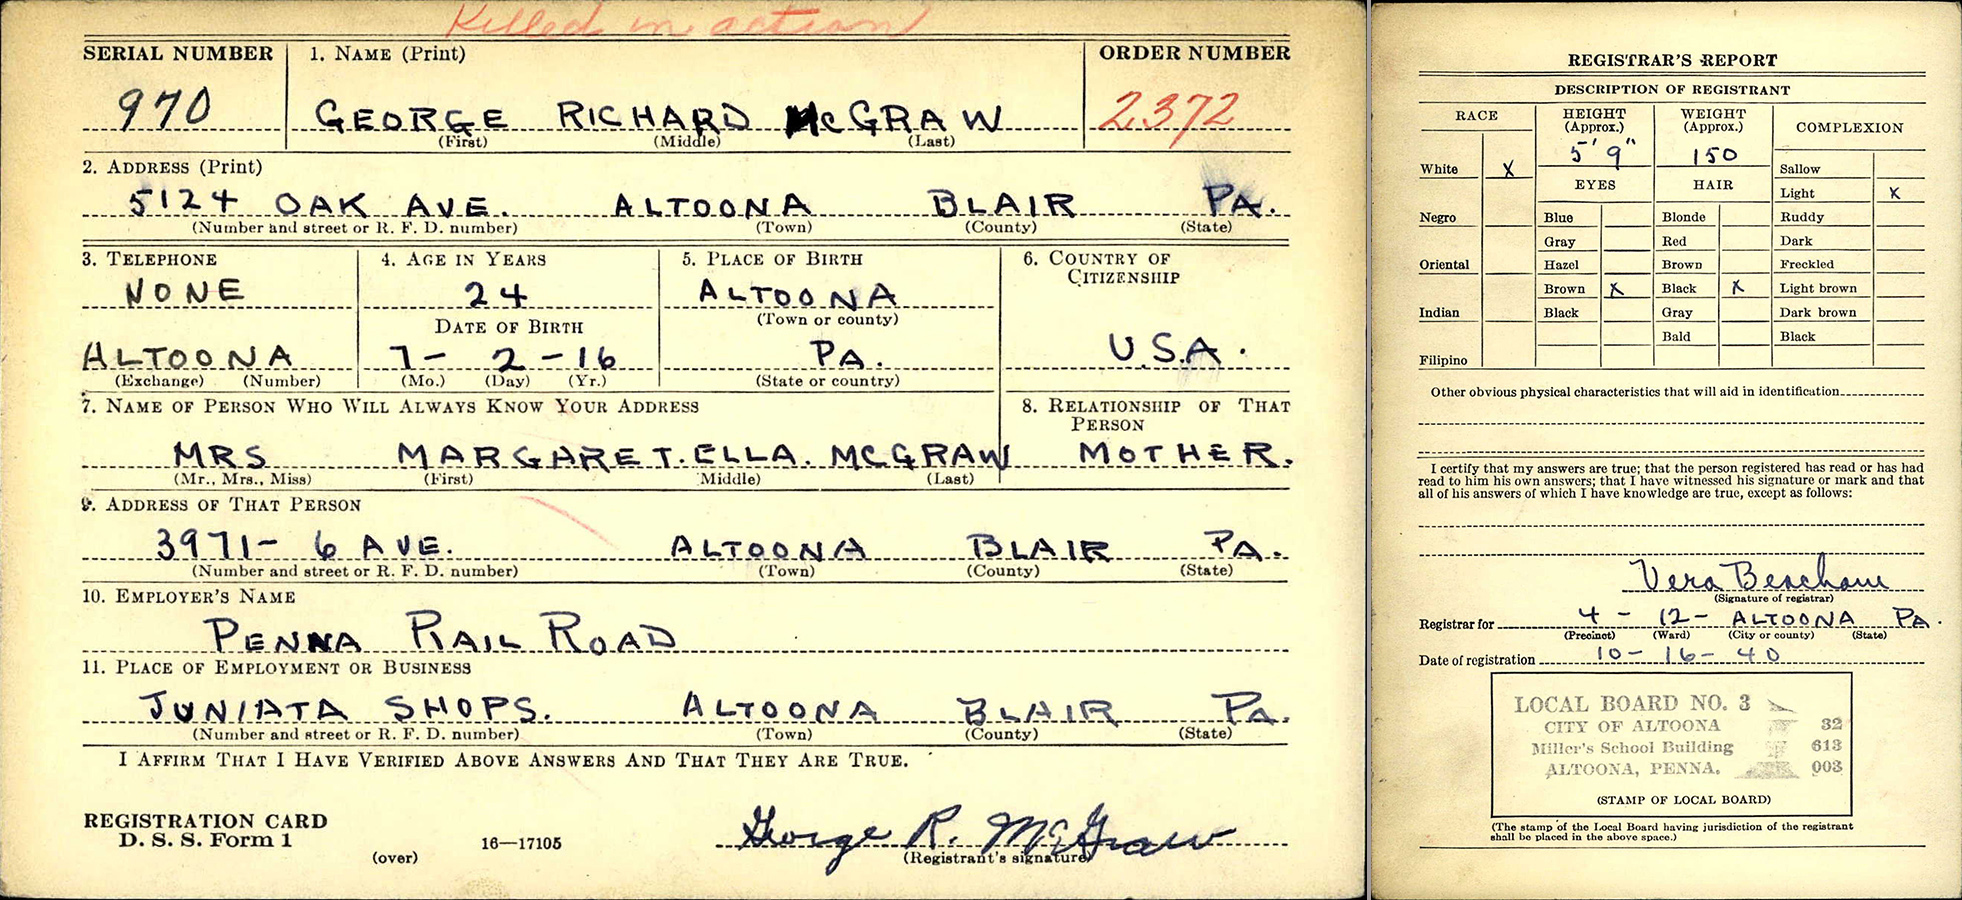 Killed in action
SERIAL NUMBER 1. NAME (Print) ORDER NUMBER
970 GEORGE RICHARD McGRAW 2372
(First) (Middle) (Last)
2. ADDRESS (Print)
5124 OAK AVE. ALTOONA BLAIR PA.
(Number and street or R. F. D. number) (Town) (County) (State)
3. TELEPHONE 4. AGE IN YEARS 5. PLACE OF BIRTH 6. COUNTRY OF
CITIZENSHIP
NONE 24 ALTOONA
(Town or county)
DATE OF BIRTH
ALTOONA 7- 2-16 PA. U.S.A.
(Exchange) (Number) (Mo.) (Day) (Yr.) (State or country)
7. NAME OF PERSON WHO WILL ALWAYS KNOW YOUR ADDRESS 8. RELATIONSHIP OF THAT
PERSON
MRS MARGARET. ELLA. MCGRAW MOTHER.
(Mr., Mrs., Miss) (First) Middle) (Last)
9. ADDRESS OF THAT PERSON
3971- 6 AVE. ALTOONA BLAIR PA.
(Number and street or R. F. D. number) (Town) (County) (State)
10. EMPLOYER'S NAME
PENNA RAIL ROAD
11. PLACE OF EMPLOYMENT OR BUSINESS
JUNIATA SHOPS. ALTOONA BLAIR PA.
(Number and street or R. F. D. number) (Town) (County) (State)
I AFFIRM THAT I HAVE VERIFIED ABOVE ANSWERS AND THAT THEY ARE TRUE.
REGISTRATION CARD
D. S. S. Form 1 16—17105 George R. McGraw
(over) (Registrant's signature)
REGISTRAR'S REPORT
DESCRIPTION OF REGISTRANT
RACE HEIGHT (Approx.) WEIGHT (Approx.) COMPLEXION
5' 9" 150
White X Sallow
EYES HAIR
Light X
Negro Blue Blonde Ruddy
Gray Red Dark
Oriental Hazel Brown Freckled
Brown X Black X Light brown
Indian Black Gray Dark brown
Bald Black
Filipino
Other obvious physical characteristics that will aid in identification
I certify that my answers are true; that the person registered has read or has had
read to him his own answers; that I have witnessed his signature or mark and that
all of his answers of which I have knowledge are true, except as follows:
Vera Beacham
(Signature of registrar)
Registrar for 4 - 12- ALTOONA PA.
(Precinct) (Ward) (City or county) (State)
Date of registration 10- 16- 40
LOCAL BOARD NO. 3
CITY OF ALTOONA 32
Miller's School Building 613
ALTOONA, PENNA. 003
(STAMP OF LOCAL BOARD)
(The stamp of the Local Board having jurisdiction of the registrant
shall be placed in the above space.)